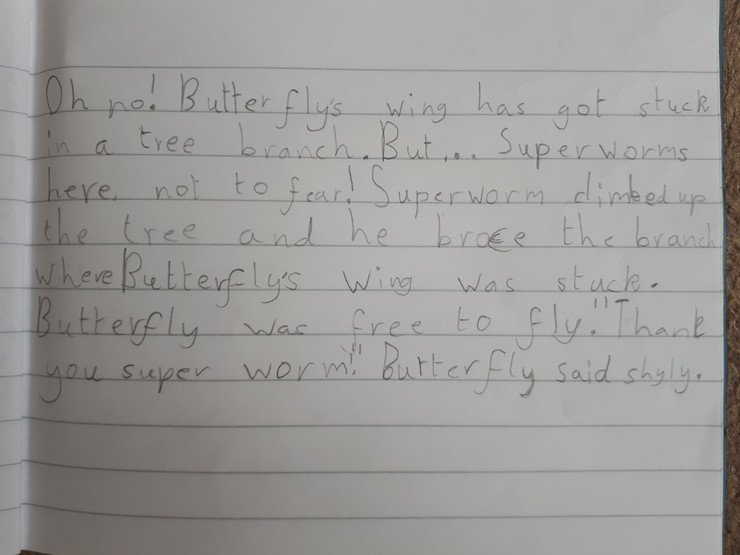 Oh no! Butterfly's wing has got stuck
in a tree branch. But... Superworms
here, not to fear! Superworm climbed up
the tree and he broke the branch
where Butterfly's wing was stuck.
Butterfly was free to fly. "Thank
you super worm!" Butterfly said shyly.